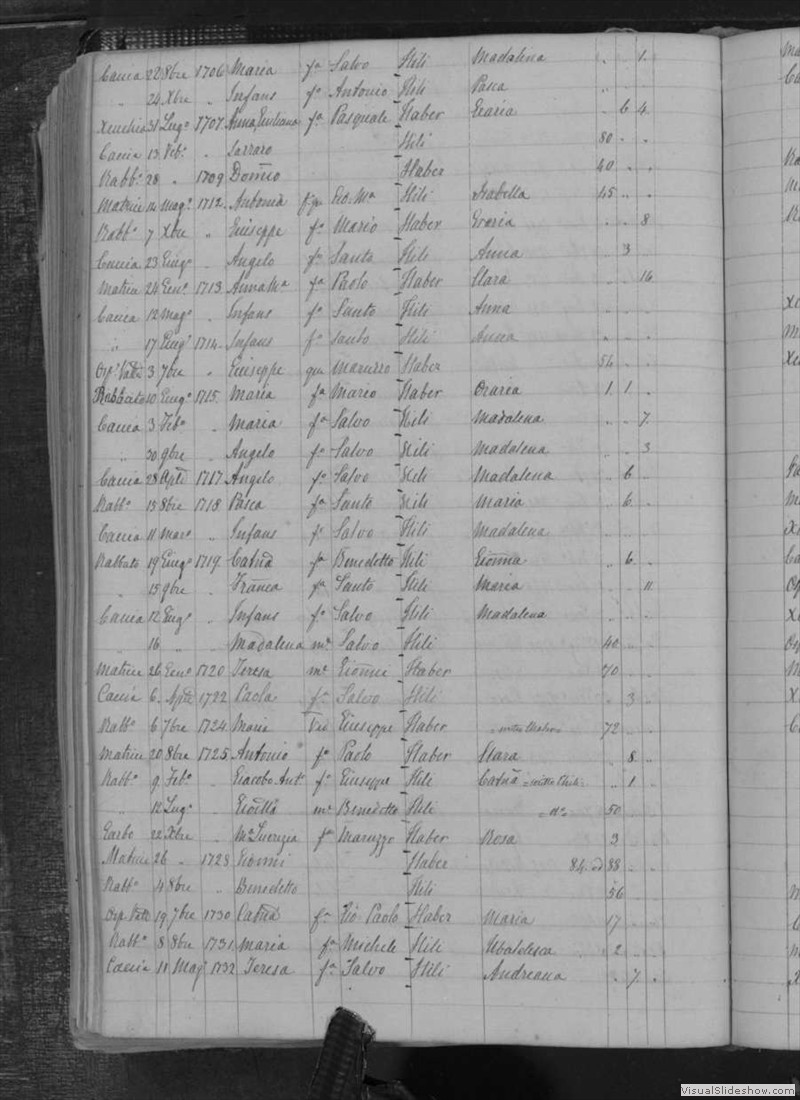 Caccia 22 8bre 1706 Maria fa Salvo Hili Madalena " " 1.
" 24 Xbre " Infans fa Antonio Hili Pasca "
31 Lugo 1707 fa Pasquale Haber " 6 4
Caccia 13 Febo " Hili 80 " "
Rabbo 28 " 1709 Domco Haber 40 " "
Matrice 14 Maggo 1712 Antonia Gio. Ma Hili Isabella 45 " "
Rabbo 7 Xbre " Giuseppe fo Mario Haber Graria " " 8
Caccia 23 Giugo " Angelo fo Santo Hili Anna " 3 "
Matrice 24 Geno 1713 Anna Ma fa Paolo Haber Clara " " 16
Caccia 12 Mago " Infans fo Santo Hili Anna " " "
" 17 Giugo 1714 Infans fo Santo Hili Anna " " "
3 7bre " Giuseppe qm Maruzzo Haber 54 " "
Rabbato 10 Giugo 1715 Maria fa Mario Haber Oraria 1. 1. "
Caccia 3 Febo " Maria fa Salvo Hili Madalena " " 7.
" 20 9bre " Angelo fo Salvo Hili Madalena " " 3
Caccia 28 Aple 1717 Angelo fo Salvo Hili Madalena " 6 "
Rabbo 15 8bre 1718 Pasca fa Santo Hili Maria " 6 "
Caccia 11 Maro " Infans fo Salvo Hili Madalena " " "
Rabbato 19 Giugo 1719 Catna fa Benedetto Hili Gionna " 6 "
" 15 9bre " Franca fa Santo Hili Maria " " 11
Caccia 12 Giugo " Infans fo Salvo Hili Madalena " " "
" 16 " " Madalena me Salvo Hili 40 " "
Matrice 26 Geno 1720 Teresa me Gionni Haber 70 " "
Caccia 6 Aple 1722 Paola fa Salvo Hili " 3 "
Rabbo 6 7bre 1724 Maria Va Giuseppe Haber 72 " "
Matrice 20 8bre 1725 Antonio fo Paolo Haber Clara " 8 "
Rabbo 9 Febo " Giacobo Anto fo Giuseppe Hili Catna " 1 "
" 12 Lugo " me Benedetto Hili 50
22 Xbre " Ma Lucrezia fa Maruzzo Haber Rosa 3
Matrice 26 " 1728 Gionni Haber 84. od 88 " "
Rabbo 4 8bre " Benedetto Hili 56
19 7bre 1730 Catna fa Gio Paolo Haber Maria 17 " "
Rabbo 8 8bre 1731 Maria fa Michele Hili Ubaldesca " 2 "
Caccia 11 Mago 1732 Teresa fa Salvo Hili Andreana " 7. "
VisualSlideshow.com